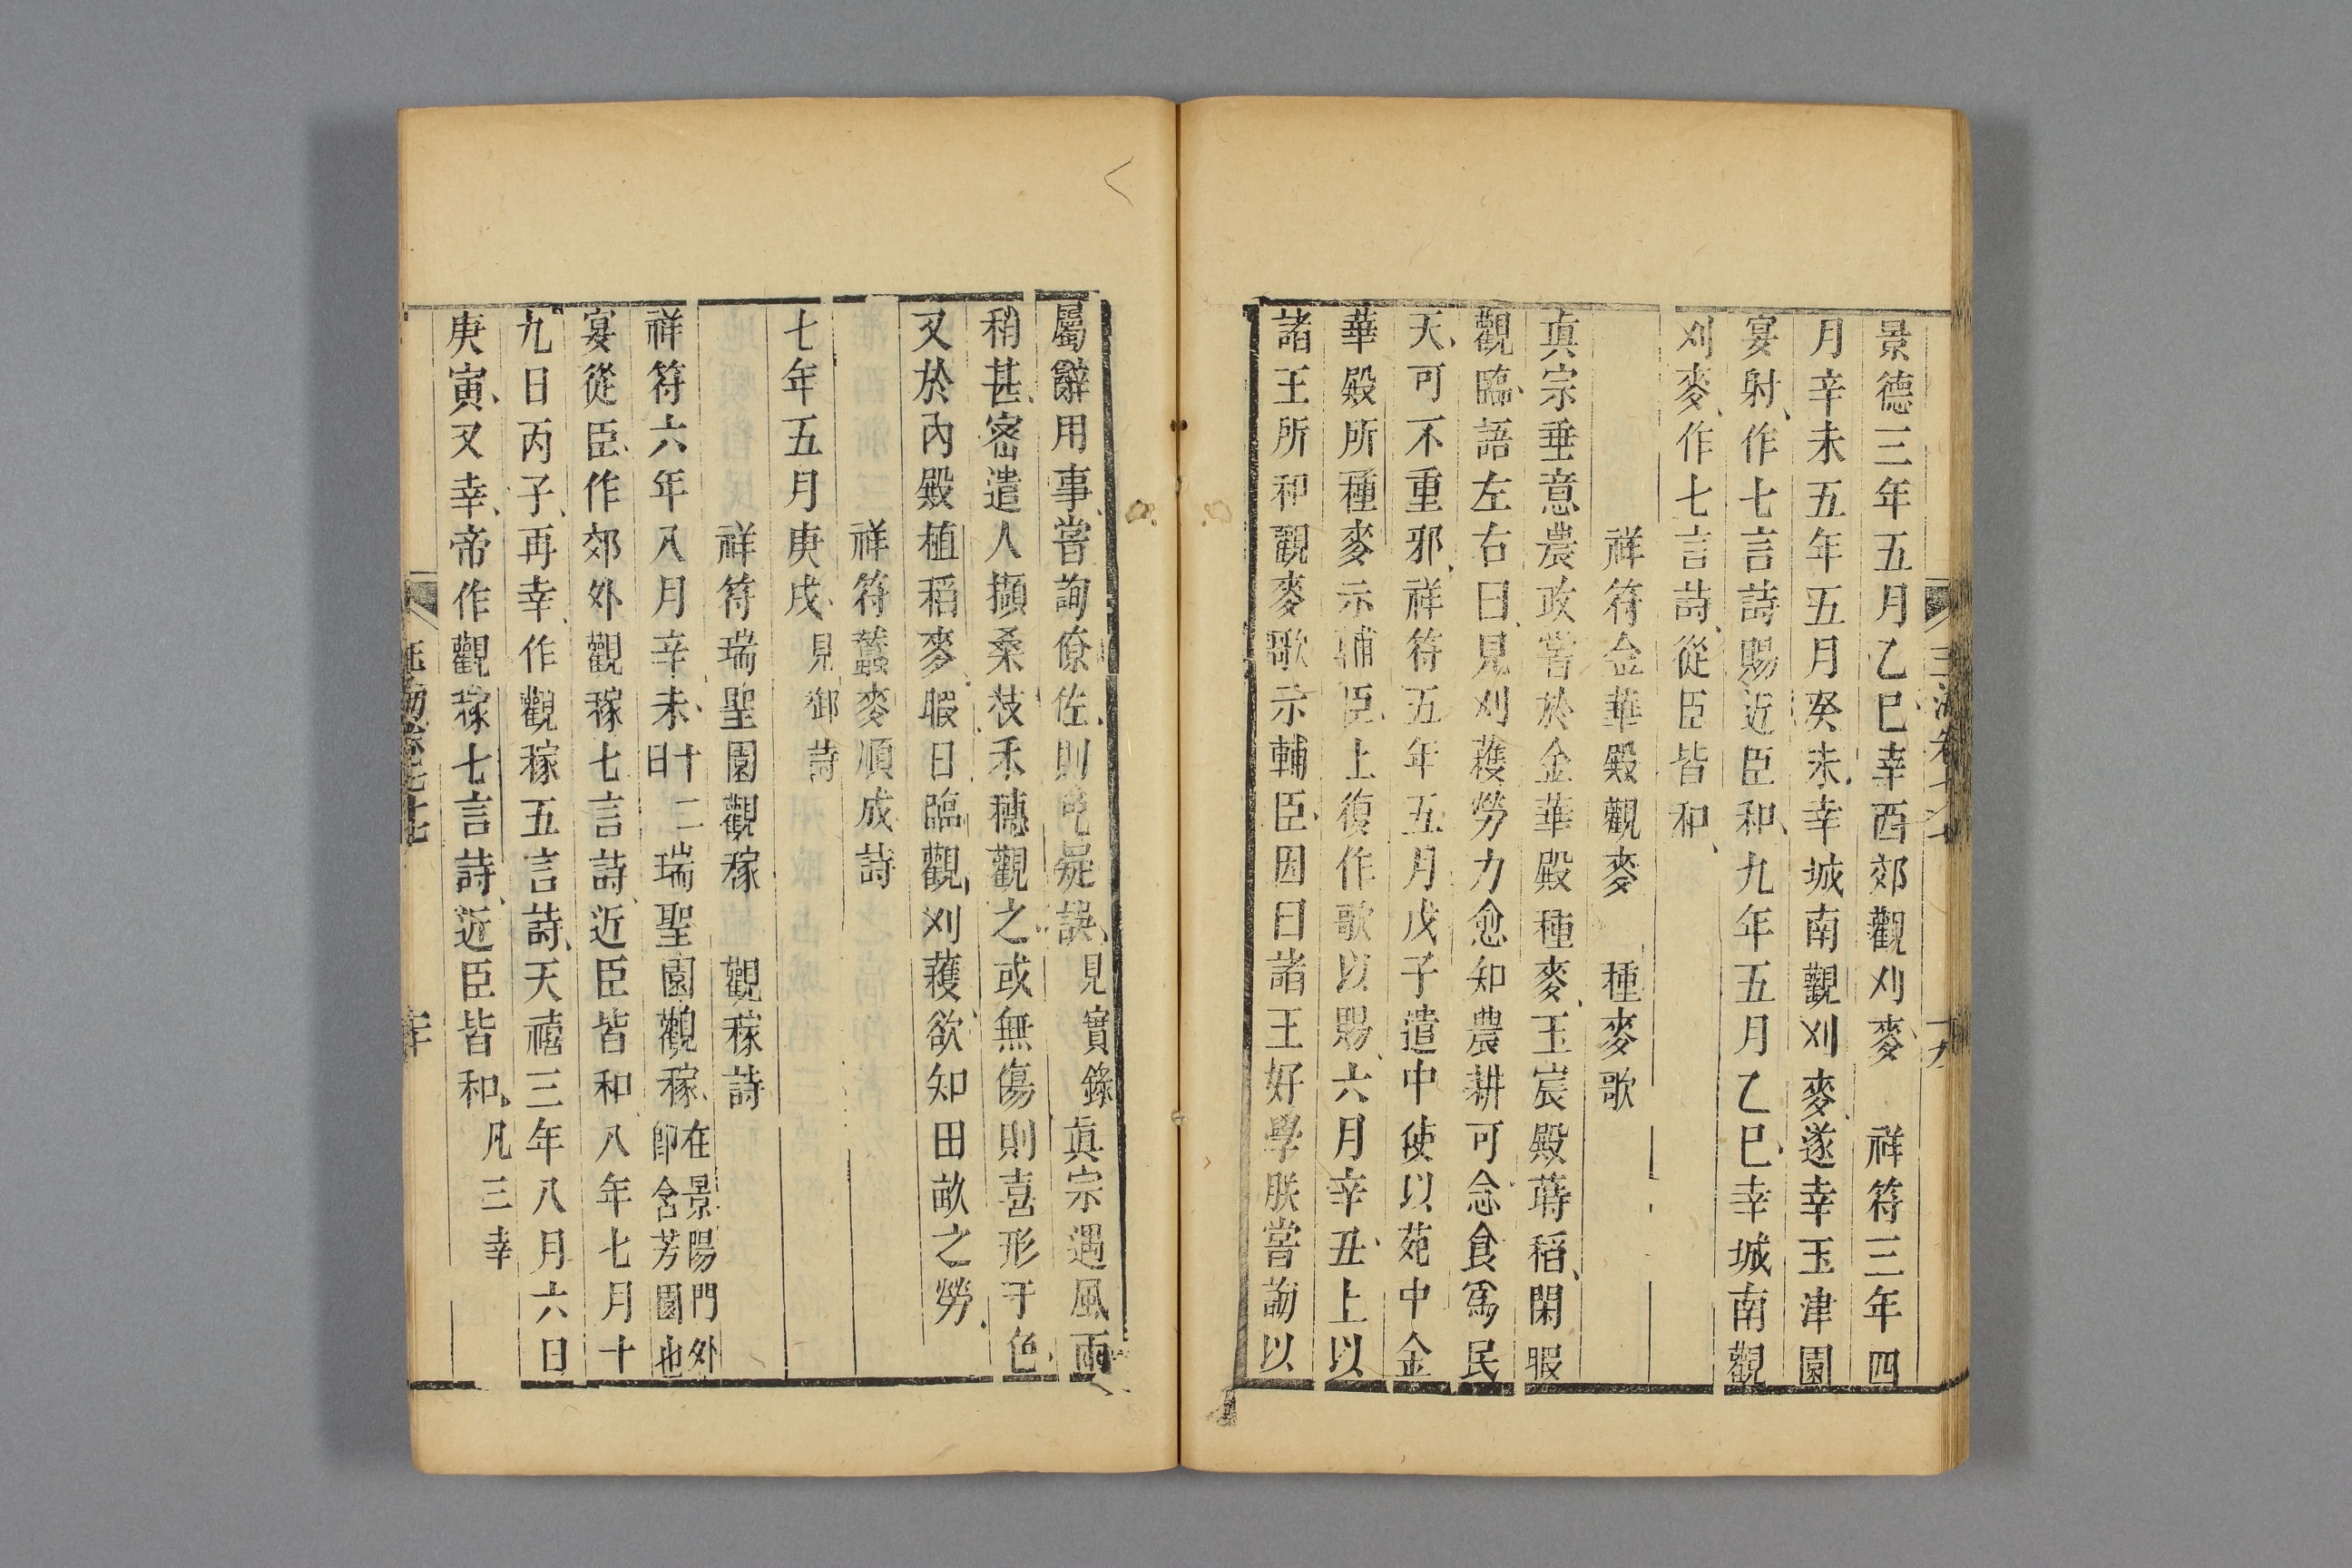 景德三年五月乙巳幸西郊觀刈麥　祥符三年四
月辛未五年五月癸未幸城南觀刈麥遂幸玉津園
宴射作七言詩賜近臣和九年五月乙巳幸城南觀
刈麥作七言詩從臣皆和
祥符金華殿觀麥　種麥歌
真宗垂意農政嘗於金華殿種麥玉宸殿蒔稻閑暇
觀臨語左右曰見刈穫勞力愈知農耕可念食爲民
天可不重邪祥符五年五月戊子遣中使以苑中金
華殿所種麥示輔臣上復作歌以賜六月辛丑上以
諸王所和觀麥歌示輔臣因曰諸王好學朕嘗諭以
屬辭用事嘗詢僚佐則免疑誤見實錄真宗遇風雨
稍甚密遣人擷桑枝禾穗觀之或無傷則喜形于色
又於內殿植稻麥暇日臨觀刈穫欲知田畝之勞
祥符蠶麥順成詩
七年五月庚戌見御詩
祥符瑞聖園觀稼　觀稼詩
祥符六年八月辛未十二日瑞聖園觀稼在景陽門外卽含芳園也
宴從臣作郊外觀稼七言詩近臣皆和八年七月十
九日丙子再幸作觀稼五言詩天禧三年八月六日
庚寅又幸帝作觀稼七言詩近臣皆和凡三幸